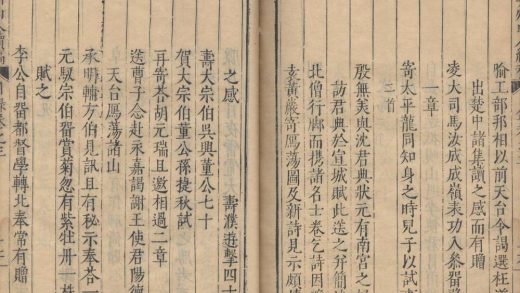 喻工部邦相以前天台令謁選枉道
出楚中諸集讀之感而有贈
凌大司馬汝成成嶺表功入參留
一章
寄太平龍同知身之時兒子以試
二首
殷無美與沈君典狀元有南宮之
訪君典於宣城賦此送之并簡
北僧行廊而攜諸名士卷乞詩因
袁黃巖寄鴈蕩圖及新詩見示頗
之感 壽濮遊擊四十
壽大宗伯吳興董公七十
賀大宗伯董公孫捷秋試
耳寄荅胡元瑞且邀相過二章
送曹子念赴永嘉謁王使君陽德
天台鴈蕩諸山
承明輔方伯見訊且有秘示奉荅一
元馭宗伯留賞菊忽有紫牡丹一株
賦之
李公自留都督學轉北奉常有贈